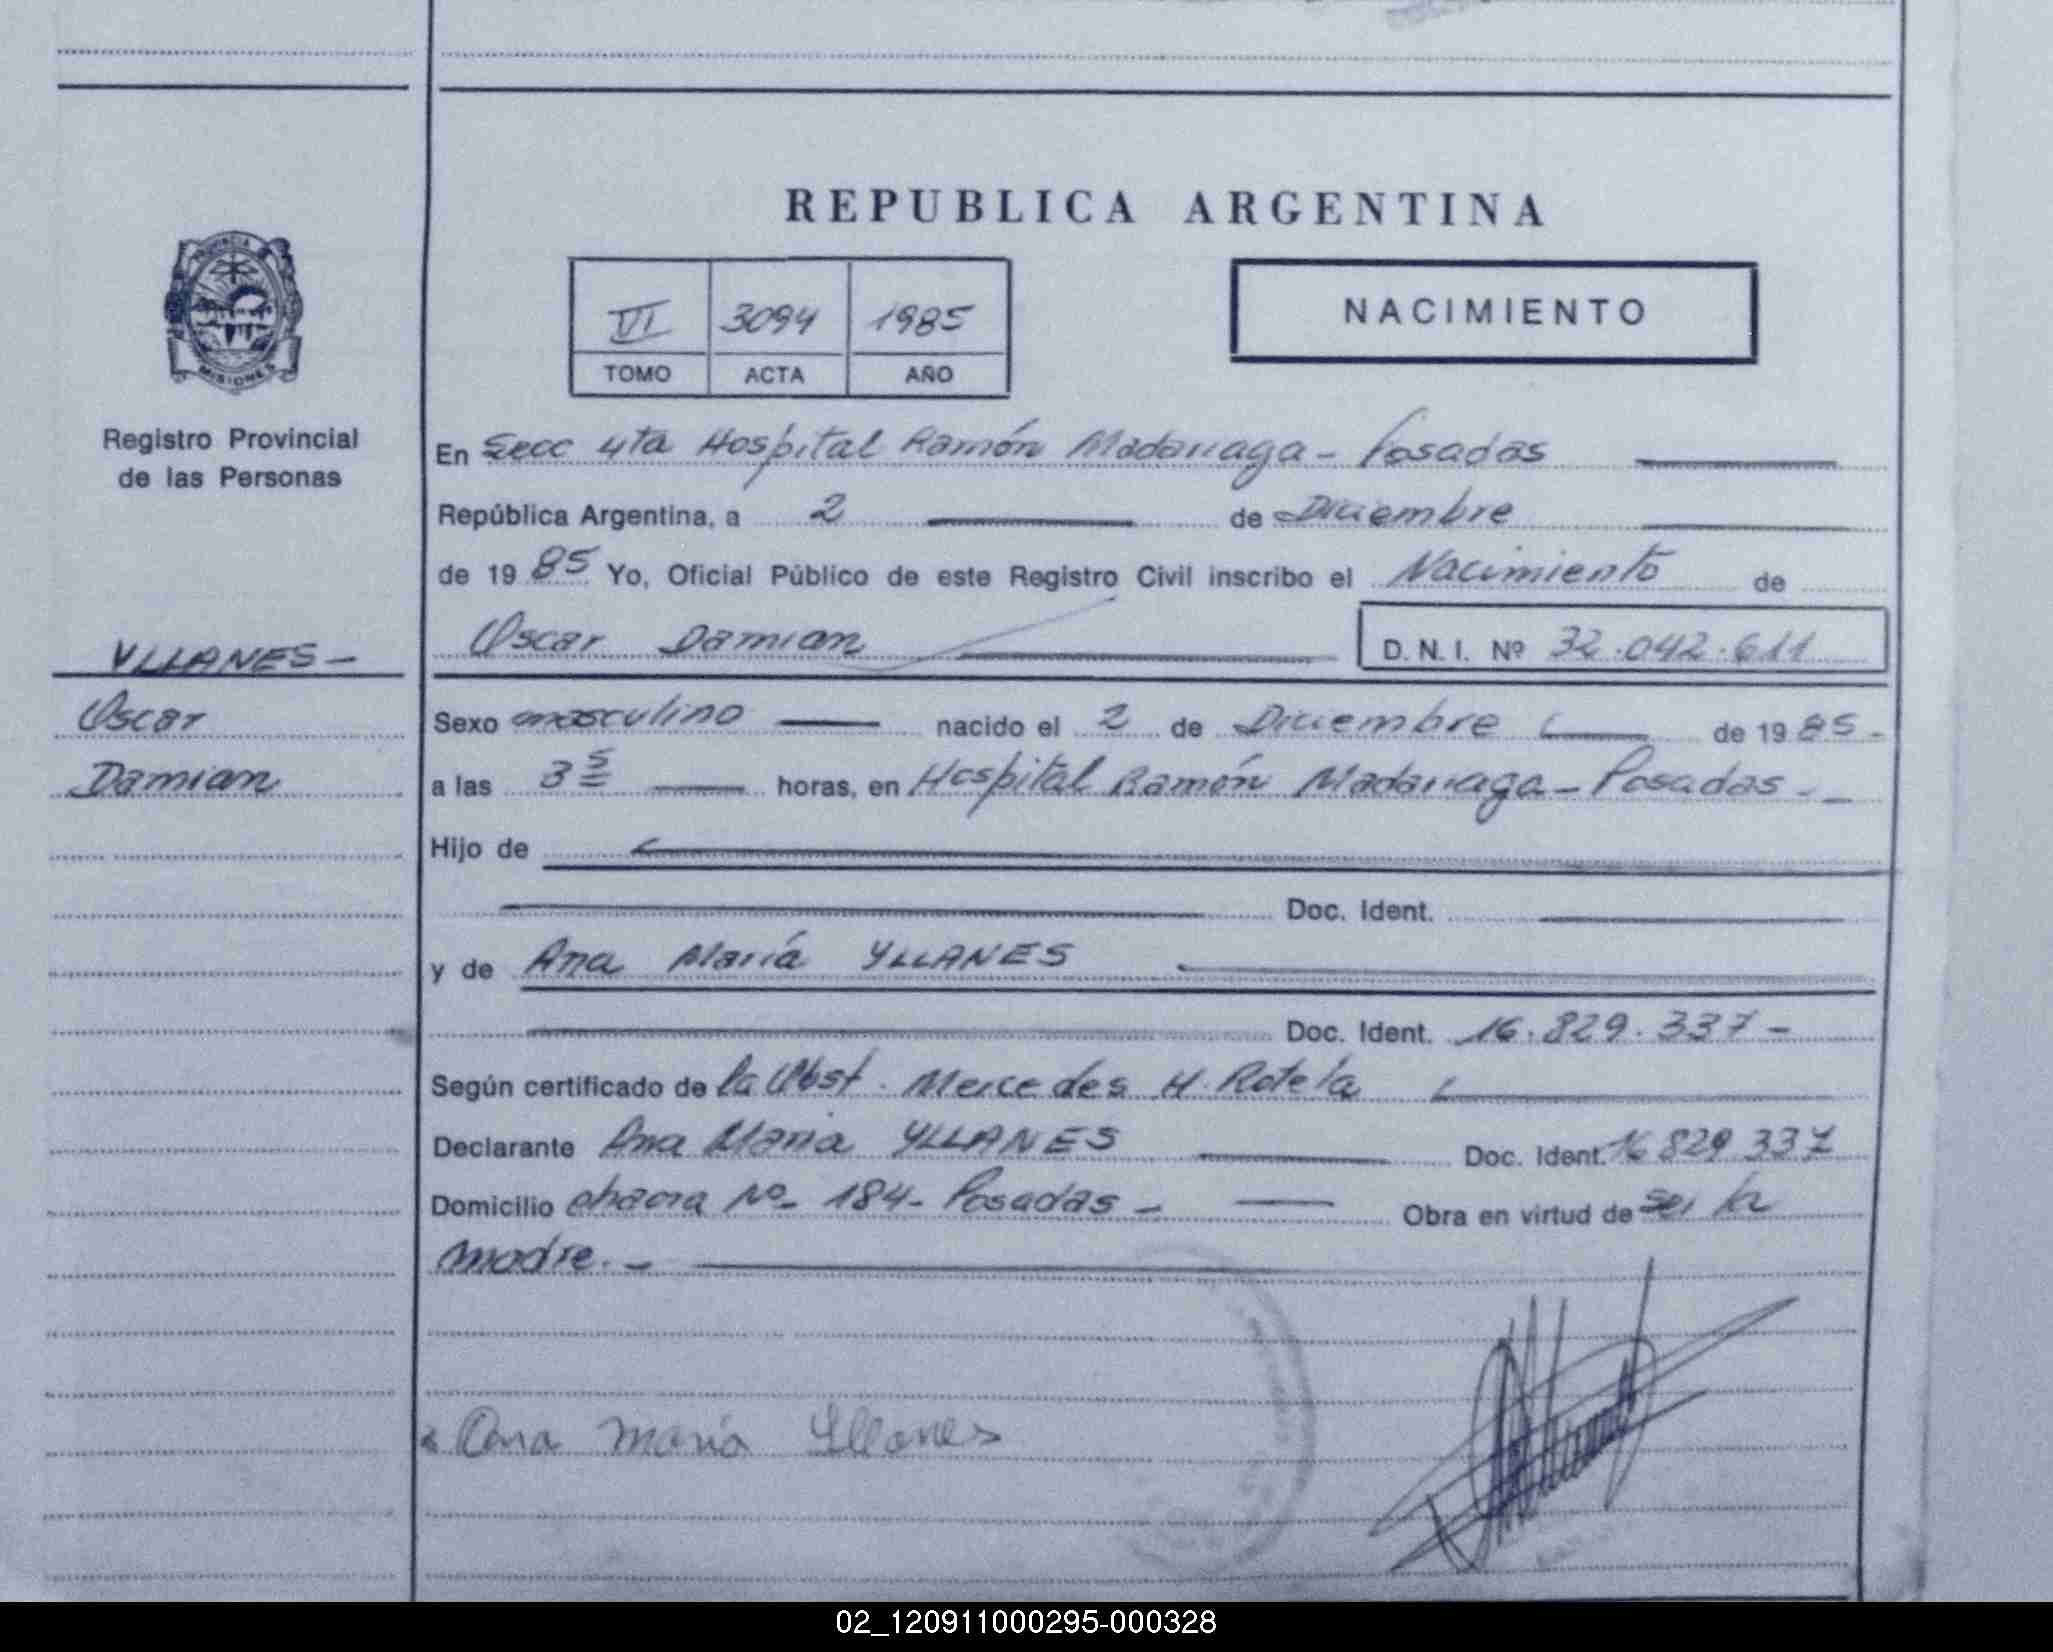 REPUBLICA ARGENTINA
PROVINCIA DE
MISIONES
Registro Provincial
de las Personas
VI 3094 1985
TOMO ACTA AÑO
NACIMIENTO
En Secc 4ta Hospital Ramón Madariaga - Posadas
República Argentina, a 2 de Diciembre
de 1985 Yo, Oficial Público de este Registro Civil inscribo el Nacimiento de
Oscar Damian D.N.I. Nº 32.042.611
YLLANES -
Oscar
Damian
Sexo masculino nacido el 2 de Diciembre de 1985 -
a las 3 5 horas, en Hospital Ramón Madariaga - Posadas - -
Hijo de
Doc. Ident.
y de Ana María YLLANES
Doc. Ident. 16.829.337 -
Según certificado de la Obst. Mercedes H. Rotela
Declarante Ana Maria YLLANES Doc. Ident. 16 829 337
Domicilio chacra Nº 184 - Posadas - Obra en virtud de ser la
madre. -
Ana María Yllanes
02_120911000295-000328